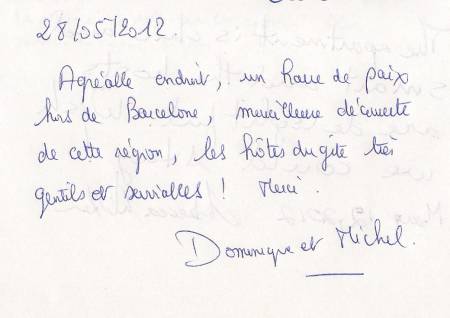 28/05/2012.
Agréable endroit, un havre de paix
hors de Barcelone, merveilleuse découverte
de cette région, les hôtes du gîte très
gentils et serviables ! Merci.
Dominique et Michel.